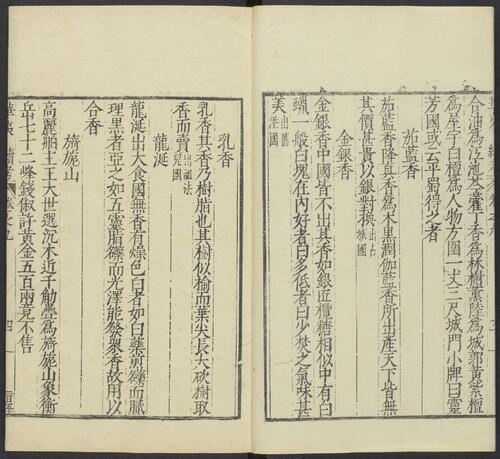 合油爲𣲖池芩藿丁香爲林樹薰陸爲城郭黃紫檀
爲屋宇白檀爲人物方圍一丈三尺城門小牌曰靈
芳國或云平蜀得之者
茄藍香
茄藍香降真香爲木黑潤伽藍香所出產天下皆無
其價甚貴以銀對換出占城國
金銀香
金銀香中國皆不出其香如銀匠欖糖相似中有白
蠟一般白塊在內好者白多低者白少焚之氣味甚
美出舊港國
乳香
乳香其香乃樹脂也其樹似榆而葉尖長大砍樹取
香而賣出祖法兒國
龍涎
龍涎出大食國無香有燥色白者如百藥煎礫而膩
理黑者亞之如五靈脂礫而光澤能發衆香故用以
合香
旖旎山
高麗舶主王大世選沉木近千觔疊爲旖旎山象衡
岳七十二峰錢俶許黃金五百兩竟不售
華夷續考 卷之九 四